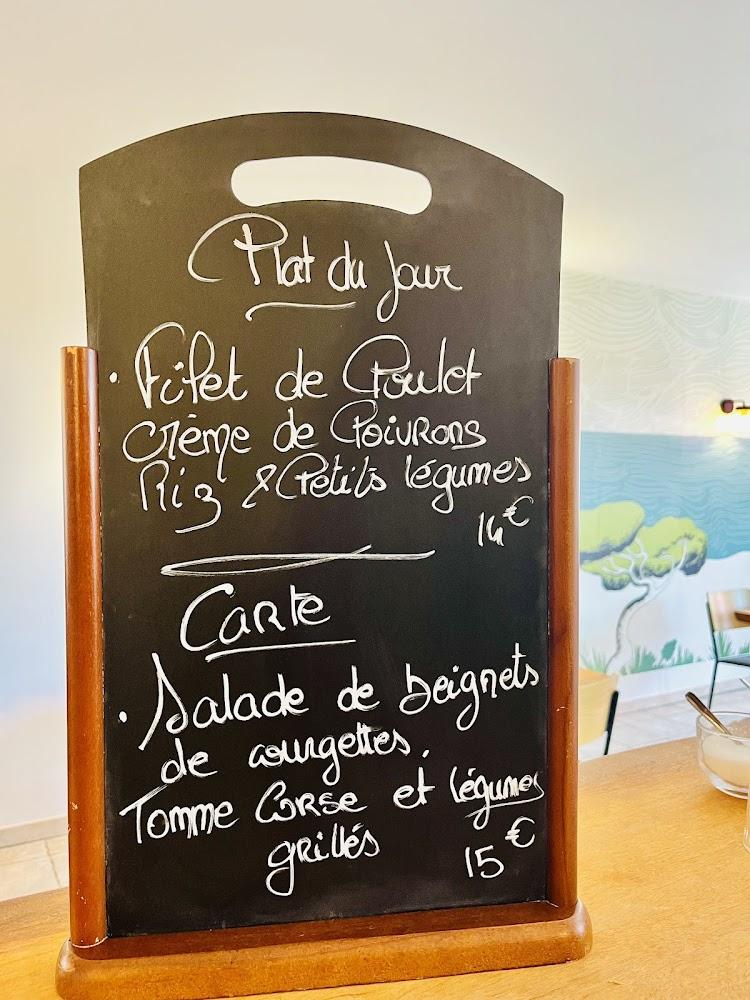 Plat du Jour
· Filet de Poulet
Crème de Poivrons
Riz & Petits légumes
14€
Carte
· Salade de beignets
de courgettes,
Tomme Corse et légumes
grillés
15€